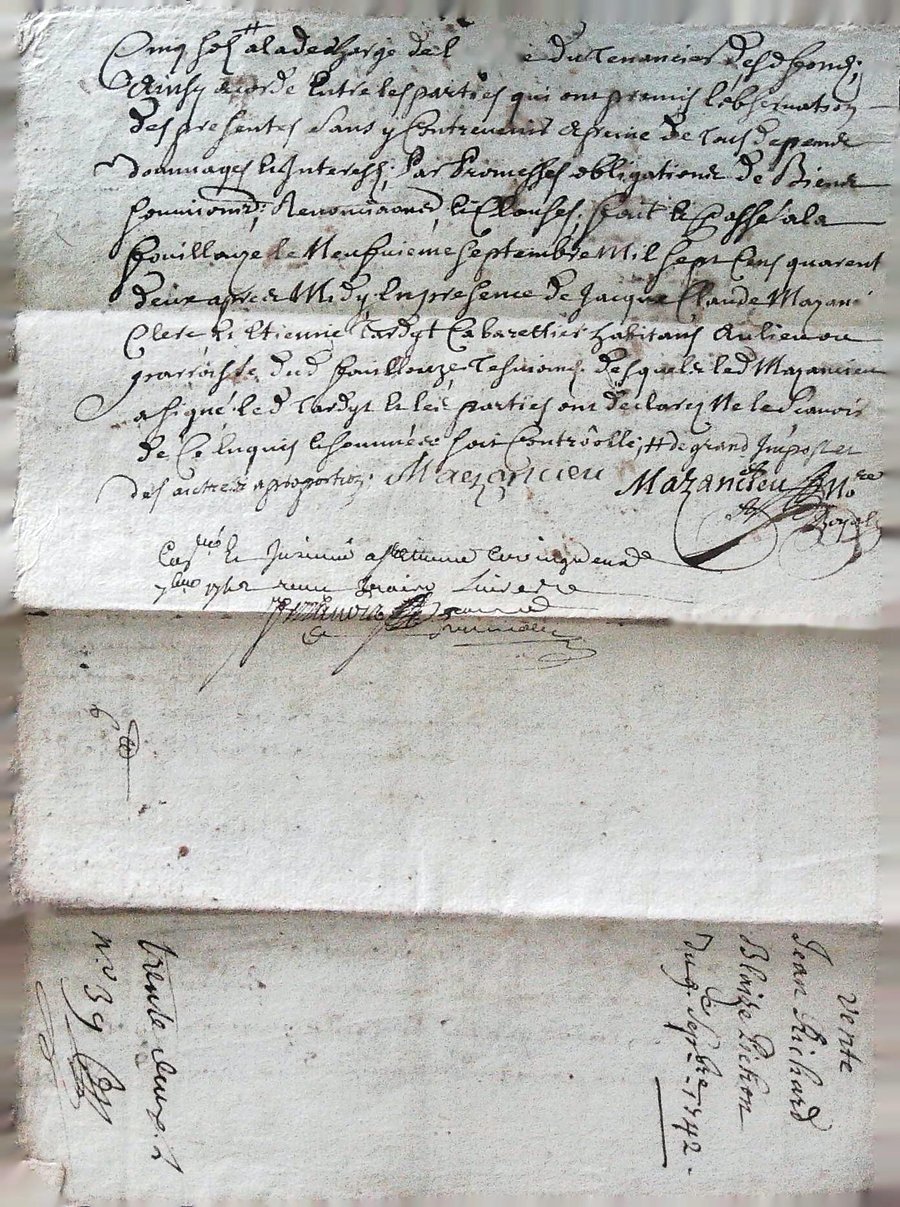 Cinq sols ## a la decharge de l e du Tenancier desd fonds;
Ainsy acordé Entre les parties qui ont promis lobservation
des presentes sans y Contrevenir a peine de tous depends
dommages et Interests, Par Promesses obligations de Biens
soumissions, Renonciations, et Clauses, fait et Passé a la
fouillouze le Neufvieme septembre Mil sept Cens quarent
deux apres Midy En presence de Jacque Claude Mazanc
Clerc et Etienne Tardyt Cabarettier habitans au lieu ou
parroisse dud fouillouze Tesmoins desquels led Mazancieu
a signé led Tardyt et les parties ont déclaré Ne le scavoir
de Ce Enquis et sommées soit Controlle; ## de grand Imposte et
des autres a proportion. Mazancieu Mazancieu No.re
Royal
et a
7bre 1742
6 ##
trente deux
n.o 39
Vente
Jean Richard
a
Blaize Pichon
Du 9. Sepbre 1742.